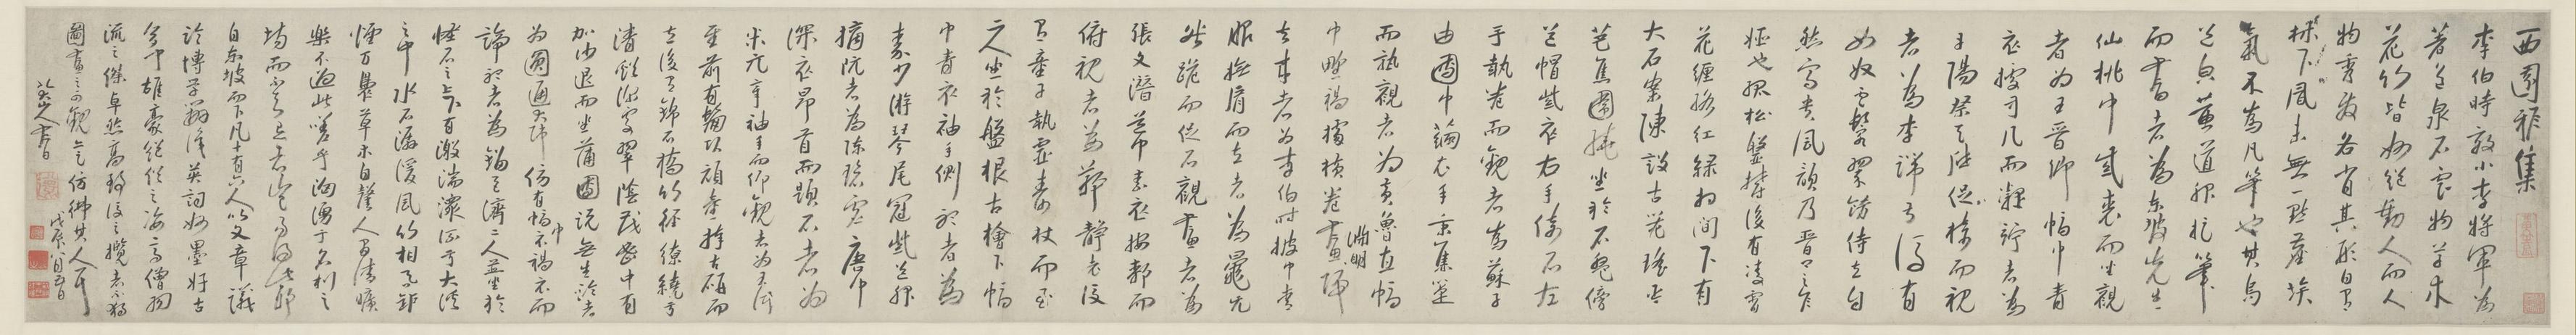 西園雅集
李伯時效小李將軍為
著色泉石雲物草木
花竹皆妙絕動人而人
物秀發各肖其形自有
林下風味無一點塵埃
氣不為凡筆也其烏
黃道服捉筆
而書者為東坡先生
仙桃巾紫裘而坐觀
者為王晉卿幅巾青
衣據方几而凝竚者為
丹陽蔡天啟捉椅而視
者為李端叔後有
女奴雲鬟翠飾侍立自
然富貴風韻乃晉卿之家
姬也孤松盤鬱後有凌霄
花纏絡紅綠相間下有
大石案陳設古器瑤琴
芭蕉圍繞坐於石磐傍
道帽紫衣右手倚石左
手執卷而觀者為蘇子
由團巾繭衣手秉蕉箑
而熟觀者為黃魯直幅
巾野褐據橫卷畫淵明歸
去來者為李伯時披巾青
服撫肩而立者為晁无
咎跪而捉石觀畫者為
張文潛道巾素衣按膝而
俯視者為鄭靜老後
有童子執靈壽杖而立
二人坐於盤根古檜下幅
巾青衣袖手側聽者為
秦少游琴尾冠紫道服
摘阮者為陳碧虛唐巾
深衣昂首而題石者為
米元章袖手而仰觀者為王仲
至前有鬅頭頑童捧古硯而
立後有錦石橋竹徑繚繞于
清谿深處翠陰茂密中有
加沙退而坐蒲團說無生論者
為圓通大師傍有幅巾褐衣而
諦聽者為劉巨濟二人並坐於
怪石之上下有激湍潨流于大溪
之中水石潺湲風竹相吞爐
煙方裊草木自馨人間清曠
樂不過此嗟乎洶湧于名利之
場而不知退者豈易得此耶
自東坡而下凡十有六人以文章議
論博學辨識英詞妙墨好古
多聞雄豪絕俗之姿高僧羽
流之傑卓然高致後之攬者不獨
圖畫之可觀亦仿彿其人耳
戊寅八月五日
八大山人書